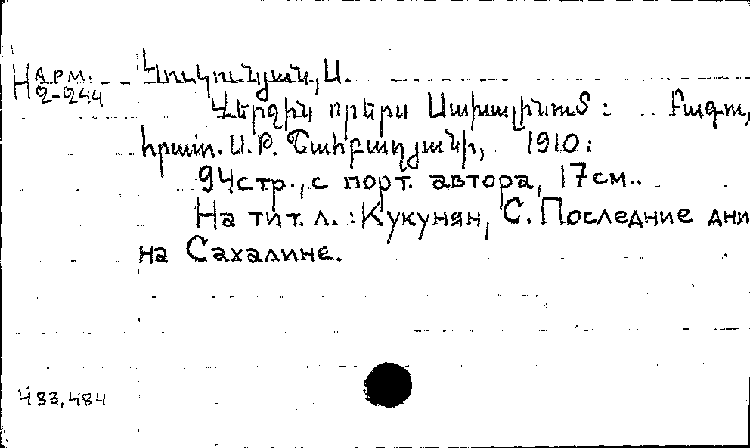 Н АРМ. 2-244
Կուկունյան, Ս.
Վերջին օրերս Սախալինում: Բագու,
հրատ. Ա. Ք. Շահբաղյանի, 1910:
94 стр., с порт. автора, 17 см..
На тит. л.: Кукунян, С. Последние дни
на Сахалине.
483,484